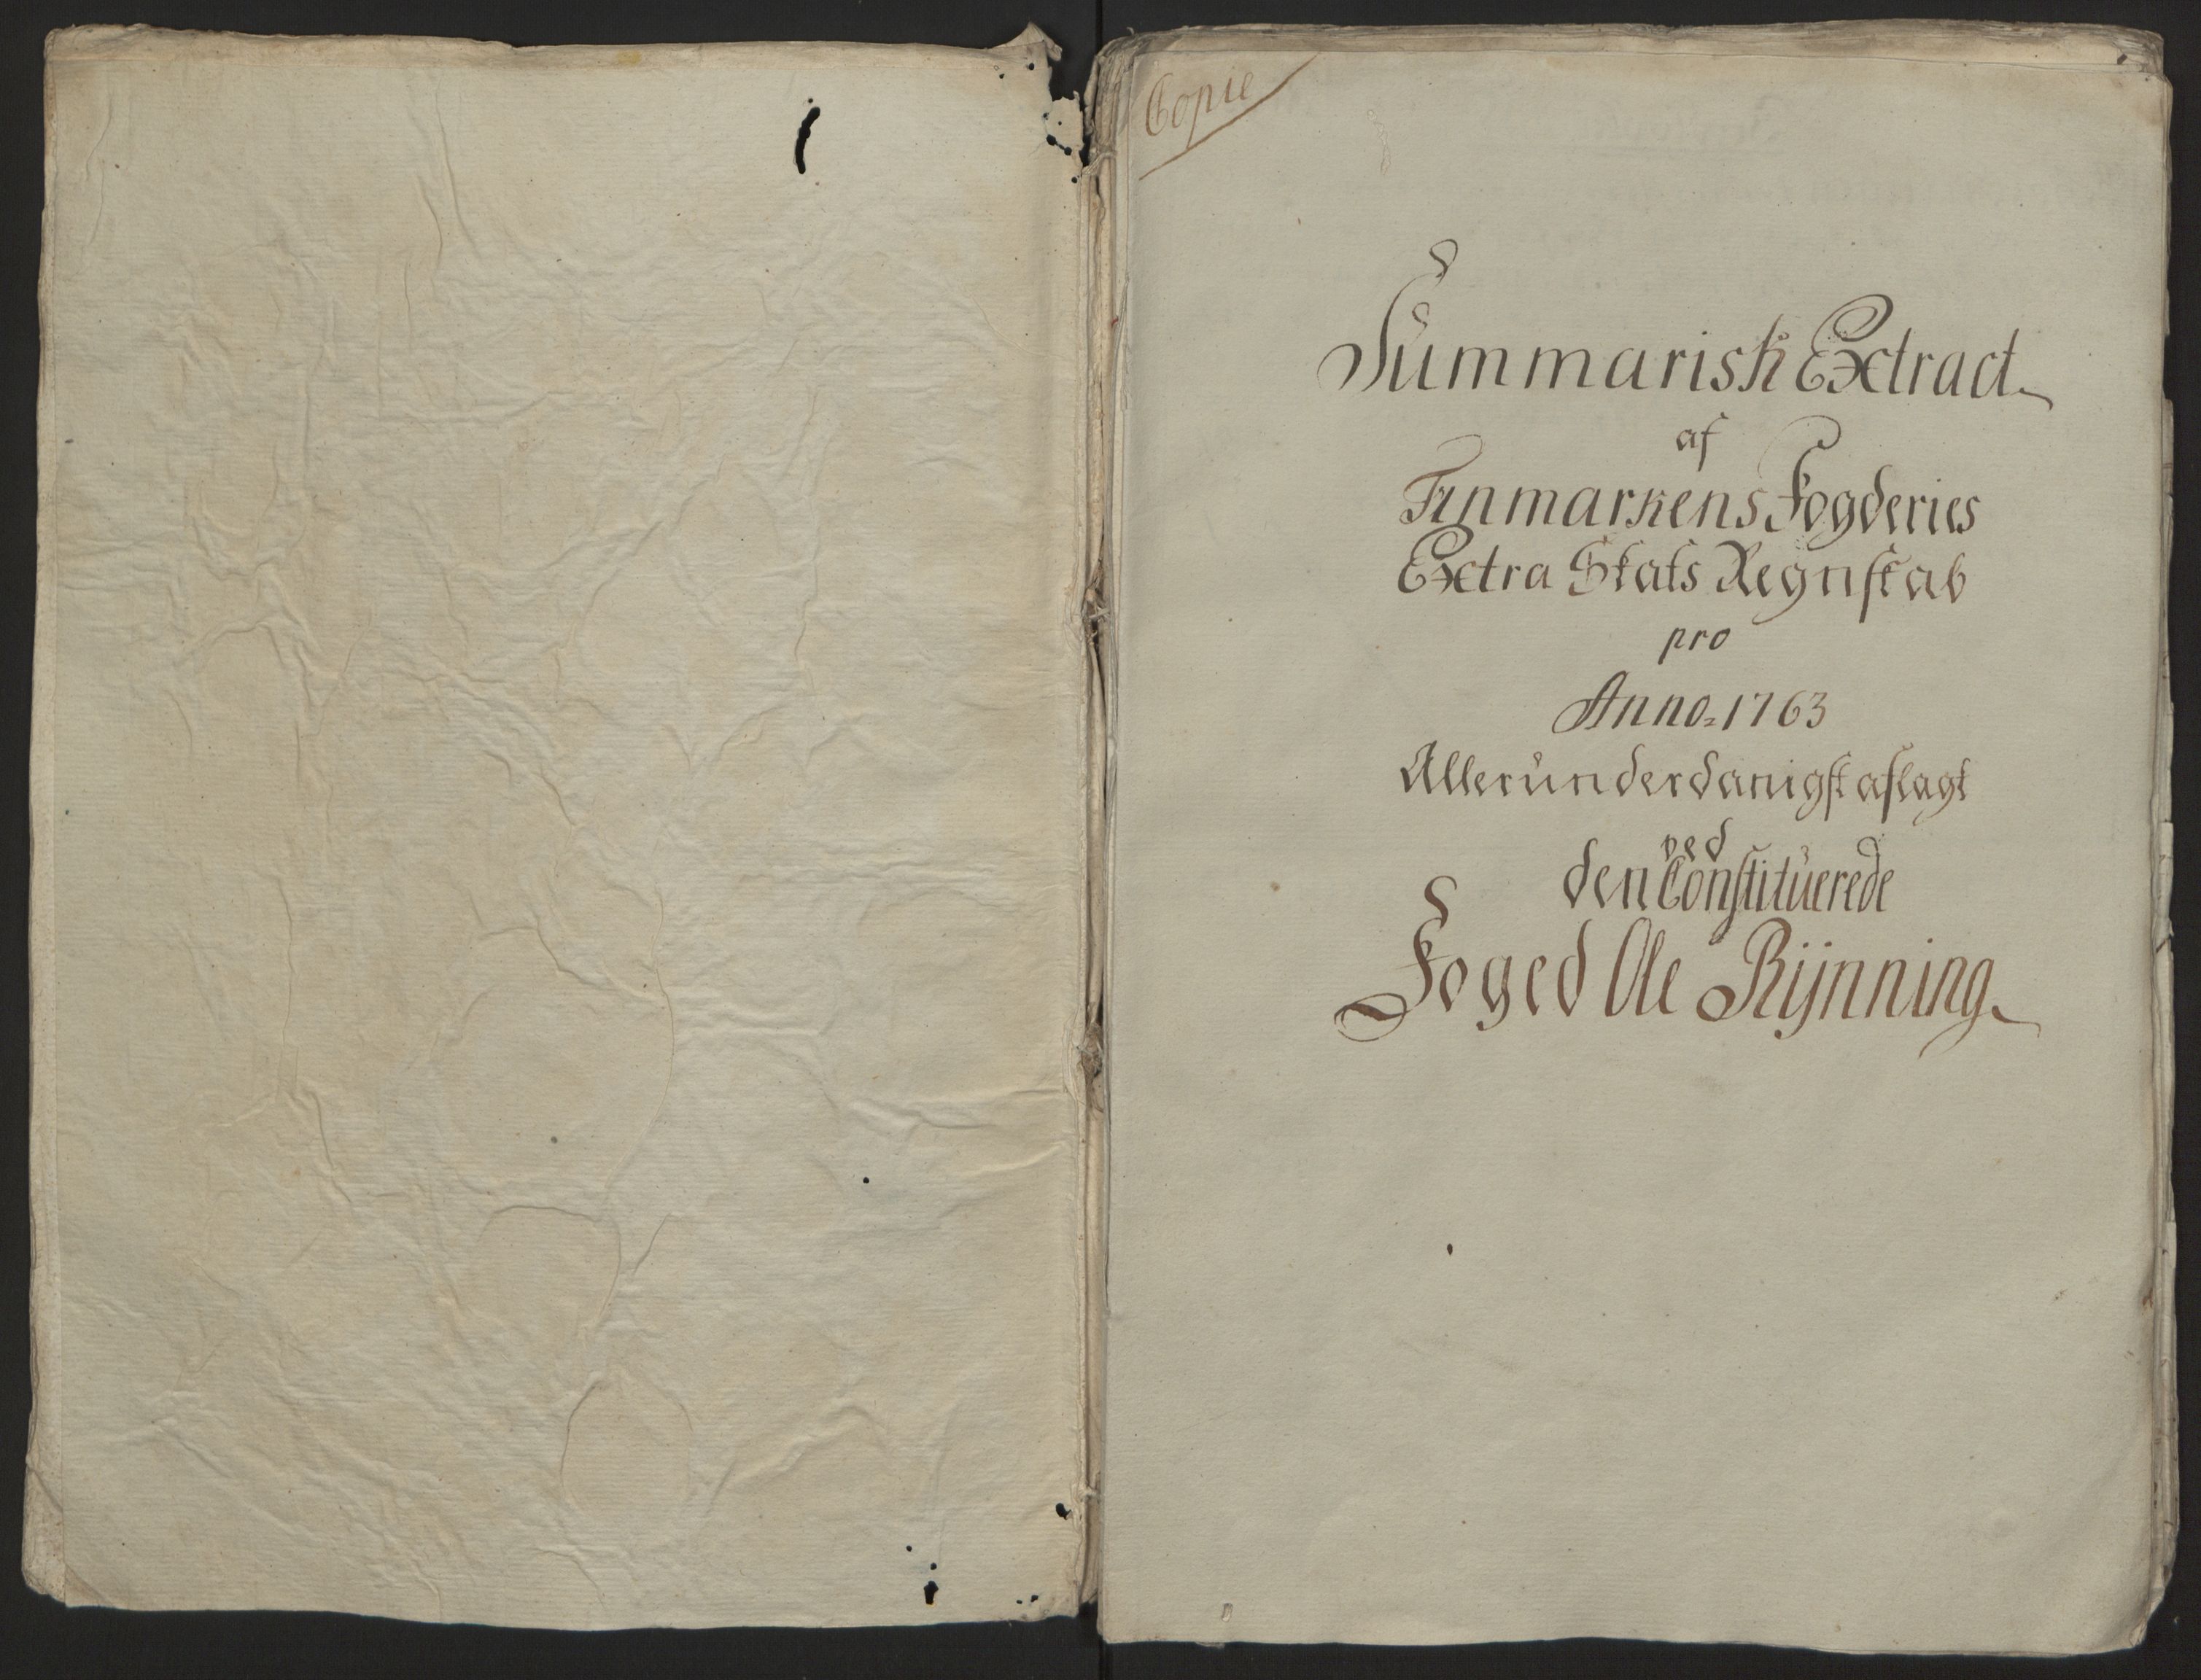 Copie
Summarisk Extract
af
Finmarkens Fogderies
Extra Skats Regnskab
pro
Anno 1763
Allerunderdanigst aflagt
ved
den Constituerede
Foged Ole Rijnning